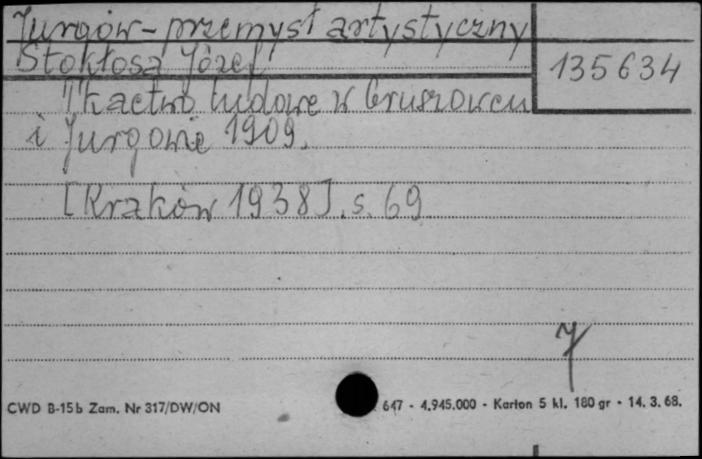 Jurgów - przemysł artystyczny
Stokłosa Józef
135634
Tkactwo ludowe w Gruszowcu
i Jurgowie 1909.
[Kraków 1938]. s. 69
7
CWD B-15b Zam. Nr 317/DW/ON
647 - 4.945.000 - Karton 5 kl. 180 gr - 14. 3. 68.